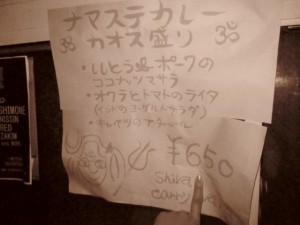 ナマステカレー
ॐ カオス盛り ॐ
・いとう ポークの
ココナッツマサラ
・オクラとトマトのライタ
(インドのヨーグルトサラダ)
・キャベツのアチャール
¥650
Shiva
Curry
SHIMONE
RED